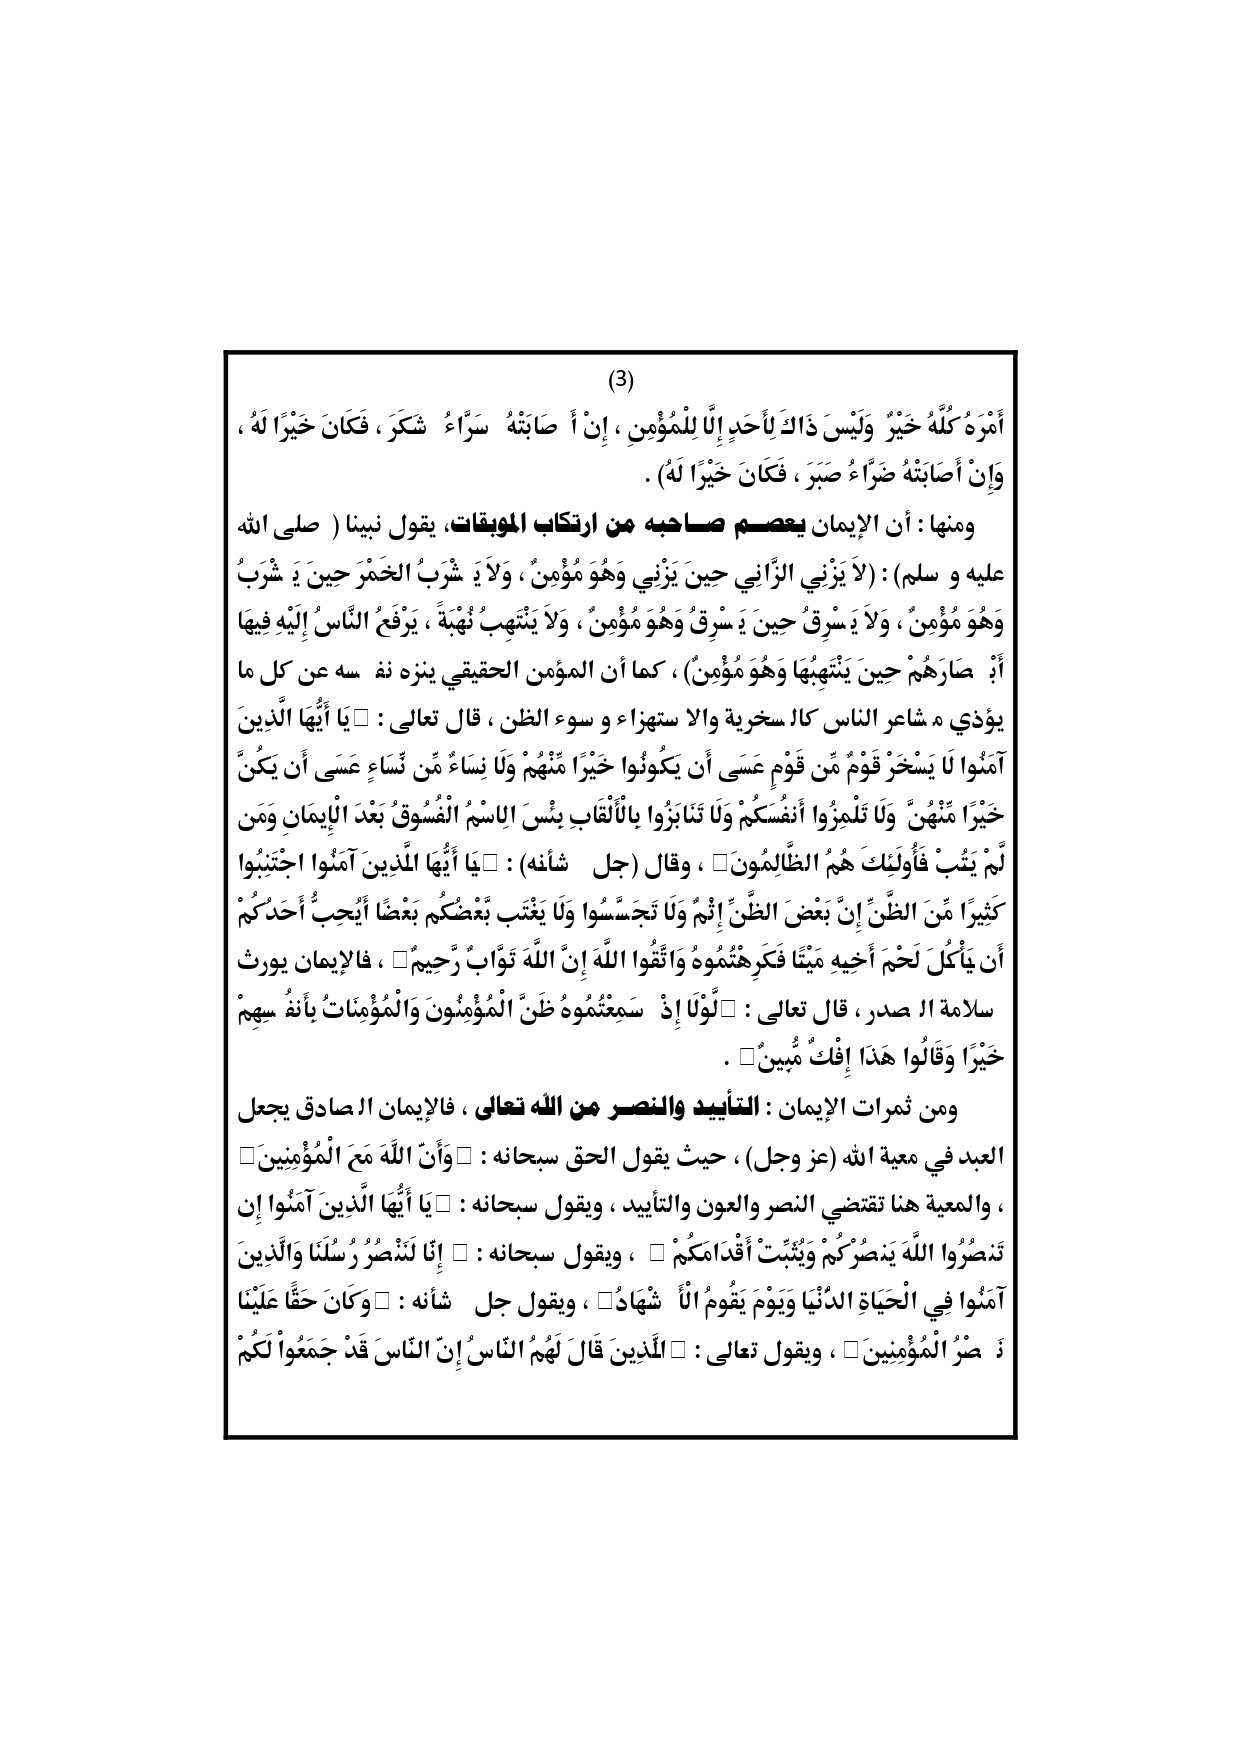 (3)
أَمْرَهُ كُلَّهُ خَيْرٌ وَلَيْسَ ذَاكَ لِأَحَدٍ إِلَّا لِلْمُؤْمِنِ ، إِنْ أَصَابَتْهُ سَرَّاءُ شَكَرَ ، فَكَانَ خَيْرًا لَهُ ،
وَإِنْ أَصَابَتْهُ ضَرَّاءُ صَبَرَ ، فَكَانَ خَيْرًا لَهُ) .
ومنها : أن الإيمان يعصم صاحبه من ارتكاب الموبقات، يقول نبينا ( صلى الله
عليه وسلم) : (لاَ يَزْنِي الزَّانِي حِينَ يَزْنِي وَهُوَ مُؤْمِنٌ ، وَلاَ يَشْرَبُ الخَمْرَ حِينَ يَشْرَبُ
وَهُوَ مُؤْمِنٌ ، وَلاَ يَسْرِقُ حِينَ يَسْرِقُ وَهُوَ مُؤْمِنٌ ، وَلاَ يَنْتَهِبُ نُهْبَةً ، يَرْفَعُ النَّاسُ إِلَيْهِ فِيهَا
أَبْصَارَهُمْ حِينَ يَنْتَهِبُهَا وَهُوَ مُؤْمِنٌ) ، كما أن المؤمن الحقيقي ينزه نفسه عن كل ما
يؤذي مشاعر الناس كالسخرية والاستهزاء وسوء الظن ، قال تعالى : يَا أَيُّهَا الَّذِينَ
آمَنُوا لَا يَسْخَرْ قَوْمٌ مِّن قَوْمٍ عَسَى أَن يَكُونُوا خَيْرًا مِّنْهُمْ وَلَا نِسَاءٌ مِّن نِّسَاءٍ عَسَى أَن يَكُنَّ
خَيْرًا مِّنْهُنَّ وَلَا تَلْمِزُوا أَنفُسَكُمْ وَلَا تَنَابَزُوا بِالْأَلْقَابِ بِئْسَ الِاسْمُ الْفُسُوقُ بَعْدَ الْإِيمَانِ وَمَن
لَّمْ يَتُبْ فَأُولَئِكَ هُمُ الظَّالِمُونَ ، وقال (جل شأنه) : يَا أَيُّهَا الَّذِينَ آمَنُوا اجْتَنِبُوا
كَثِيرًا مِّنَ الظَّنِّ إِنَّ بَعْضَ الظَّنِّ إِثْمٌ وَلَا تَجَسَّسُوا وَلَا يَغْتَب بَّعْضُكُم بَعْضًا أَيُحِبُّ أَحَدُكُمْ
أَن يَأْكُلَ لَحْمَ أَخِيهِ مَيْتًا فَكَرِهْتُمُوهُ وَاتَّقُوا اللَّهَ إِنَّ اللَّهَ تَوَّابٌ رَّحِيمٌ ، فالإيمان يورث
سلامة الصدر ، قال تعالى : لَّوْلَا إِذْ سَمِعْتُمُوهُ ظَنَّ الْمُؤْمِنُونَ وَالْمُؤْمِنَاتُ بِأَنفُسِهِمْ
خَيْرًا وَقَالُوا هَذَا إِفْكٌ مُّبِينٌ .
ومن ثمرات الإيمان : التأييد والنصر من الله تعالى ، فالإيمان الصادق يجعل
العبد في معية الله (عز وجل) ، حيث يقول الحق سبحانه : وَأَنّ اللَّهَ مَعَ الْمُؤْمِنِينَ
، والمعية هنا تقتضي النصر والعون والتأييد ، ويقول سبحانه : يَا أَيُّهَا الَّذِينَ آمَنُوا إِن
تَنصُرُوا اللَّهَ يَنصُرْكُمْ وَيُثَبِّتْ أَقْدَامَكُمْ ، ويقول سبحانه : إِنّا لَنَنْصُرُ رُسُلَنَا وَالَّذِينَ
آمَنُوا فِي الْحَيَاةِ الدّنْيَا وَيَوْمَ يَقُومُ الْأَشْهَادُ ، ويقول جل شأنه : وَكَانَ حَقًّا عَلَيْنَا
نَصْرُ الْمُؤْمِنِينَ ، ويقول تعالى : الَّذِينَ قَالَ لَهُمُ النّاسُ إِنّ النّاسَ قَدْ جَمَعُواْ لَكُمْ